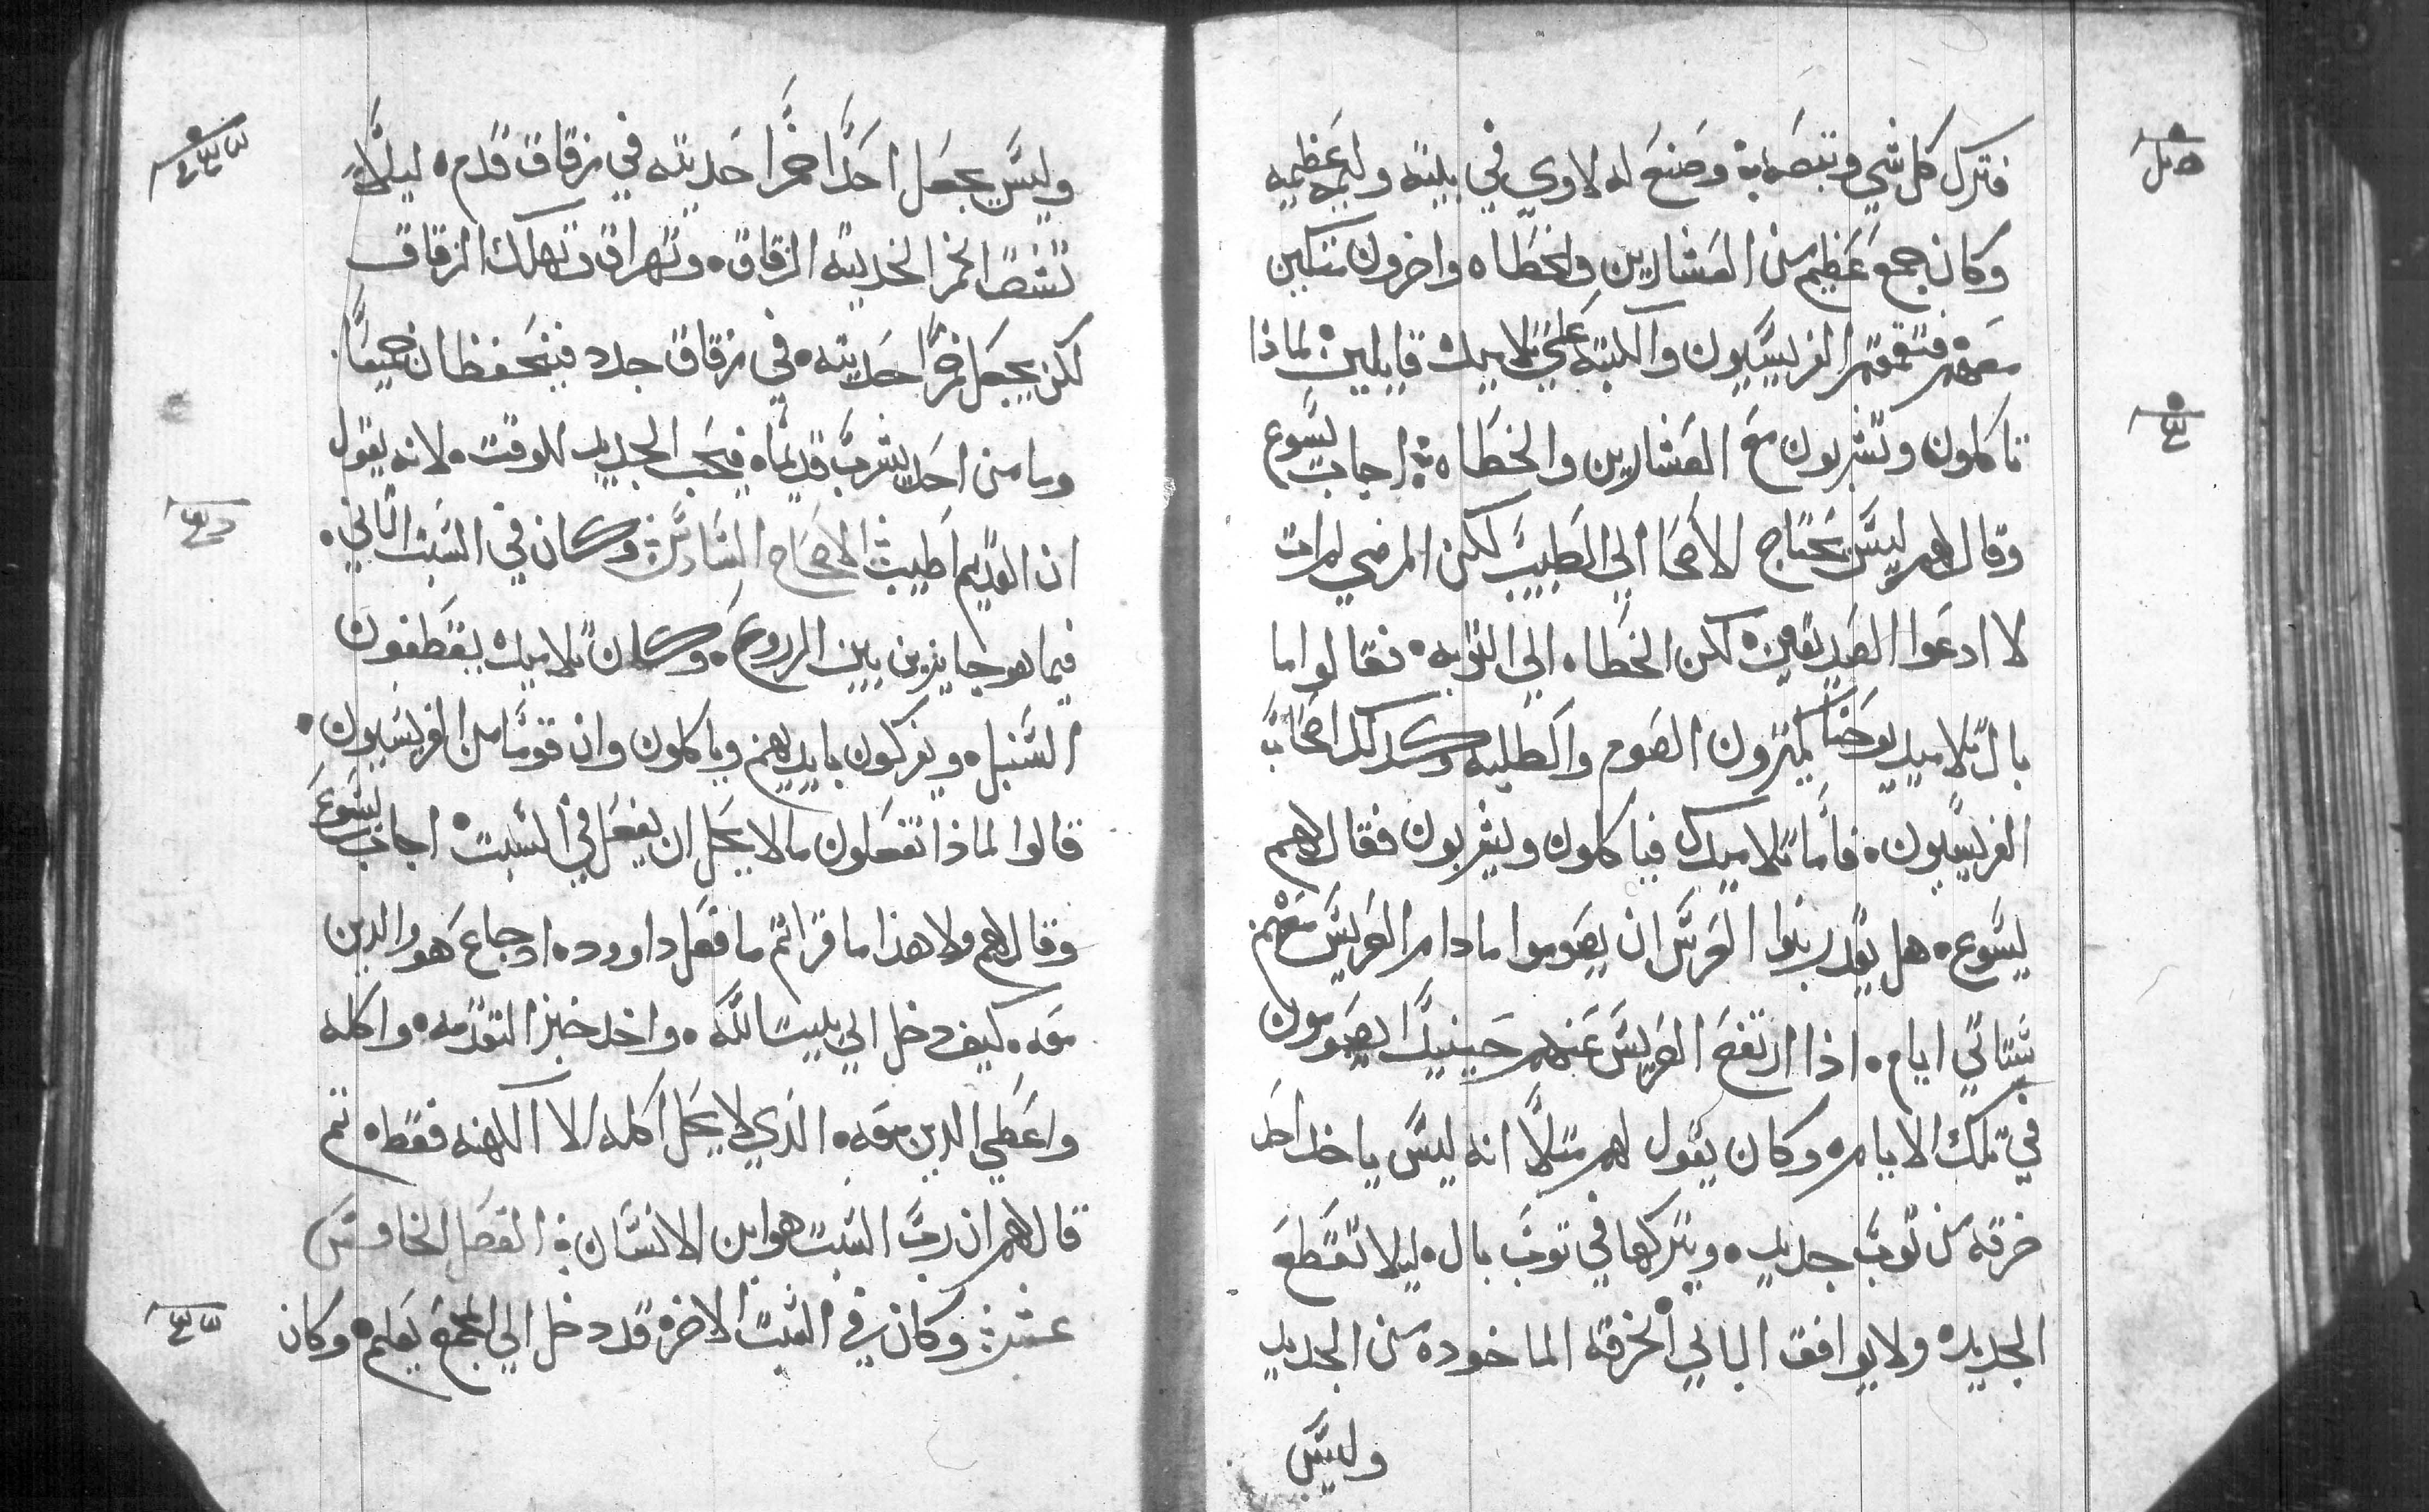 فترك كل شي وتبعه وصنع له لاوي في بيته وليمه عظيمه
وكان جمع عظيم من العشارين والخطاه واخرون متكين
معهم فتقمقم الفريسيون والكتبه علي تلاميده قايلين لماذا
تاكلون وتشربون مع العشارين والخطاه اجاب يسوع
وقال لهم ليس يحتاج الاصحا الي الطبيب لكن المرضي لم ات
لا ادعوا الصديقين لكن الخطاه الي التوبه فقالوا ما
بال تلاميد يوحنا يكترون الصوم والطلبه وكدلك اصحاب
الفريسيون فاما تلاميدك فياكلون ويشربون فقال لهم
يسوع هل يقدر بنوا العرس ان يصوموا مادام العريس معهم
ستاتي ايام اذا ارتفع العريس عنهم حينيد يصومون
في تلك الايام وكان يقول لهم متلا انه ليس ياخد احد
خرقه من توب جديد ويتركها في توب بال ليلا تقطع
الجديده ولا يوافق البالي الخرقه الماخوده من الجديد
وليس
وليس يجعل احد خمرا حديته في زقاق قدم ليلا
تشق الخمر الحديته الزقاق وتهراق وتهلك الزقاق
لكن يجعل خمرا حديته في زقاق جدد فيتحفظان جميعا
وما من احد يشرب قديما فيحب الجديد للوقت لانه يقول
ان القديم اطيب الاصحاح السادس وكان في السبت التاني
فيما هو جايز بين الزروع وكان تلاميده يقطفون
السنبل ويفركون بايديهم وياكلون وان قوما من الفريسيون
قالوا لماذا تفعلون ما لا يحل ان يفعل في السبت اجاب يسوع
وقال لهم ولا هذا ما قراتم ما فعل داوود اد جاع هو والدين
معه كيف دخل الي بيت الله واخد خبز التقدمه واكله
واعطي الدين معه الذي لا يحل اكله الا الكهنه فقط تم
قال لهم ان رب السبت هو ابن الانسان الفصل الخامس
عشر وكان في السبت الاخر قد دخل الي المجمع يعلم وكان